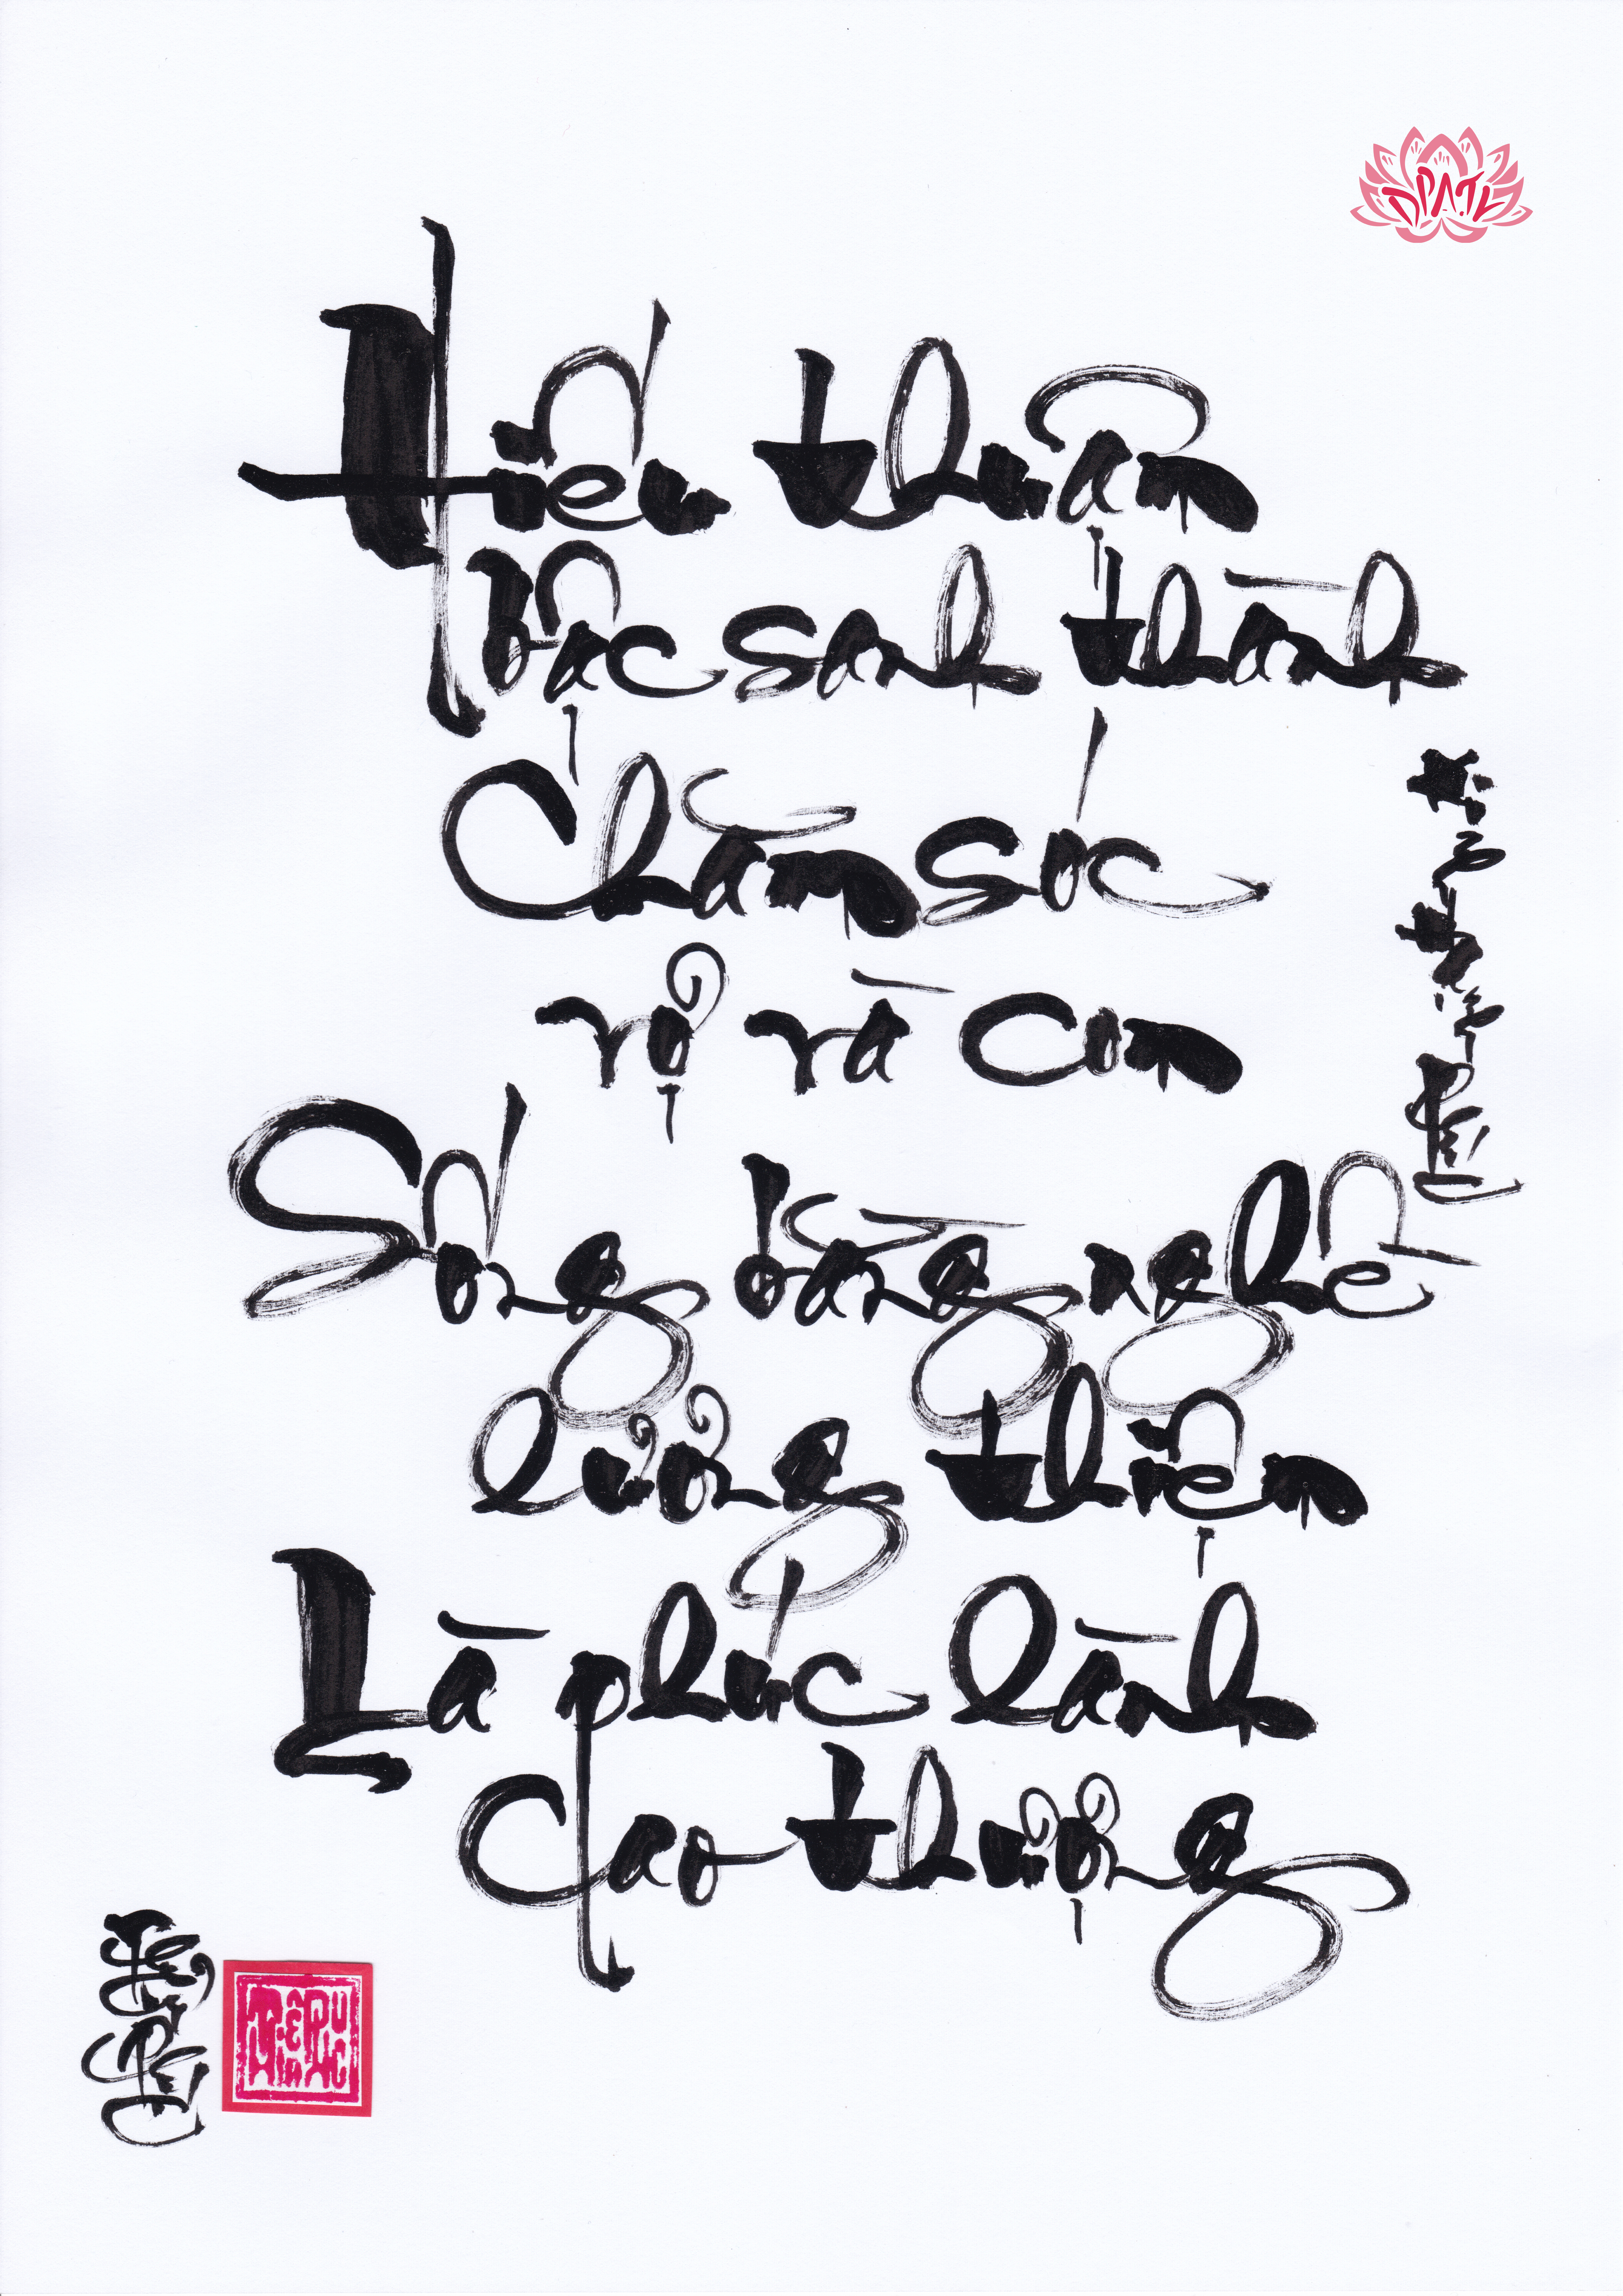 ĐPATV
Hiếu thuận
bậc sanh thành
Chăm sóc
vợ và con
Sống bằng nghề
lương thiện
Là phúc lành
cao thượng